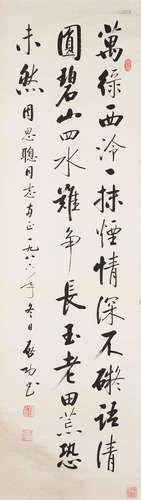 萬綠西泠一抹煙情深不礙語清
圓碧山四水難爭長玉老田荒恐
未然 周思聰同志正一九八六年冬日 啟功書